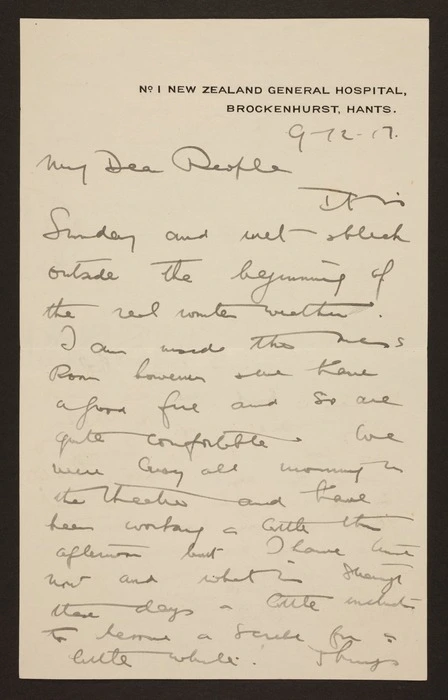 Nº 1 NEW ZEALAND GENERAL HOSPITAL,
BROCKENHURST, HANTS.
9-12-17.
My Dear People
It is
Sunday and wet - sleet
outside the beginning of
the real winter weather.
I am inside the Mess
Room however we have
a good fire and so are
quite comfortable. We
were busy all morning in
the theatre and have
been working a little this
afternoon but I have time
now and what is strange
these days a little
to become a scribe for a
little while. Things